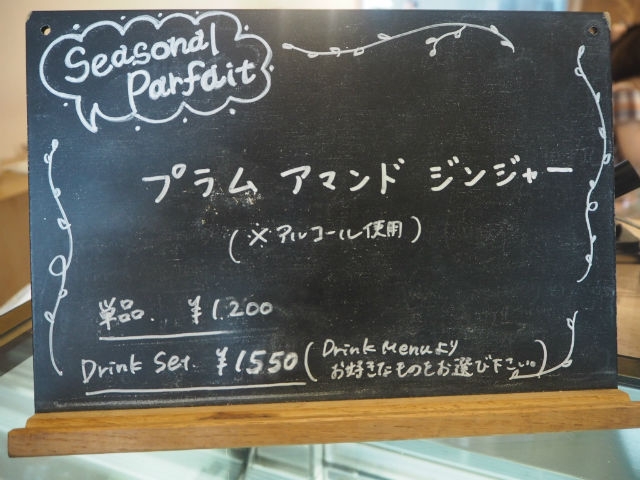 Seasonal
Parfait
プラム アマンド ジンジャー
(※アルコール使用)
単品. ¥1.200
Drink Set. ¥1550 (Drink Menuより
お好きなものをお選び下さい。)